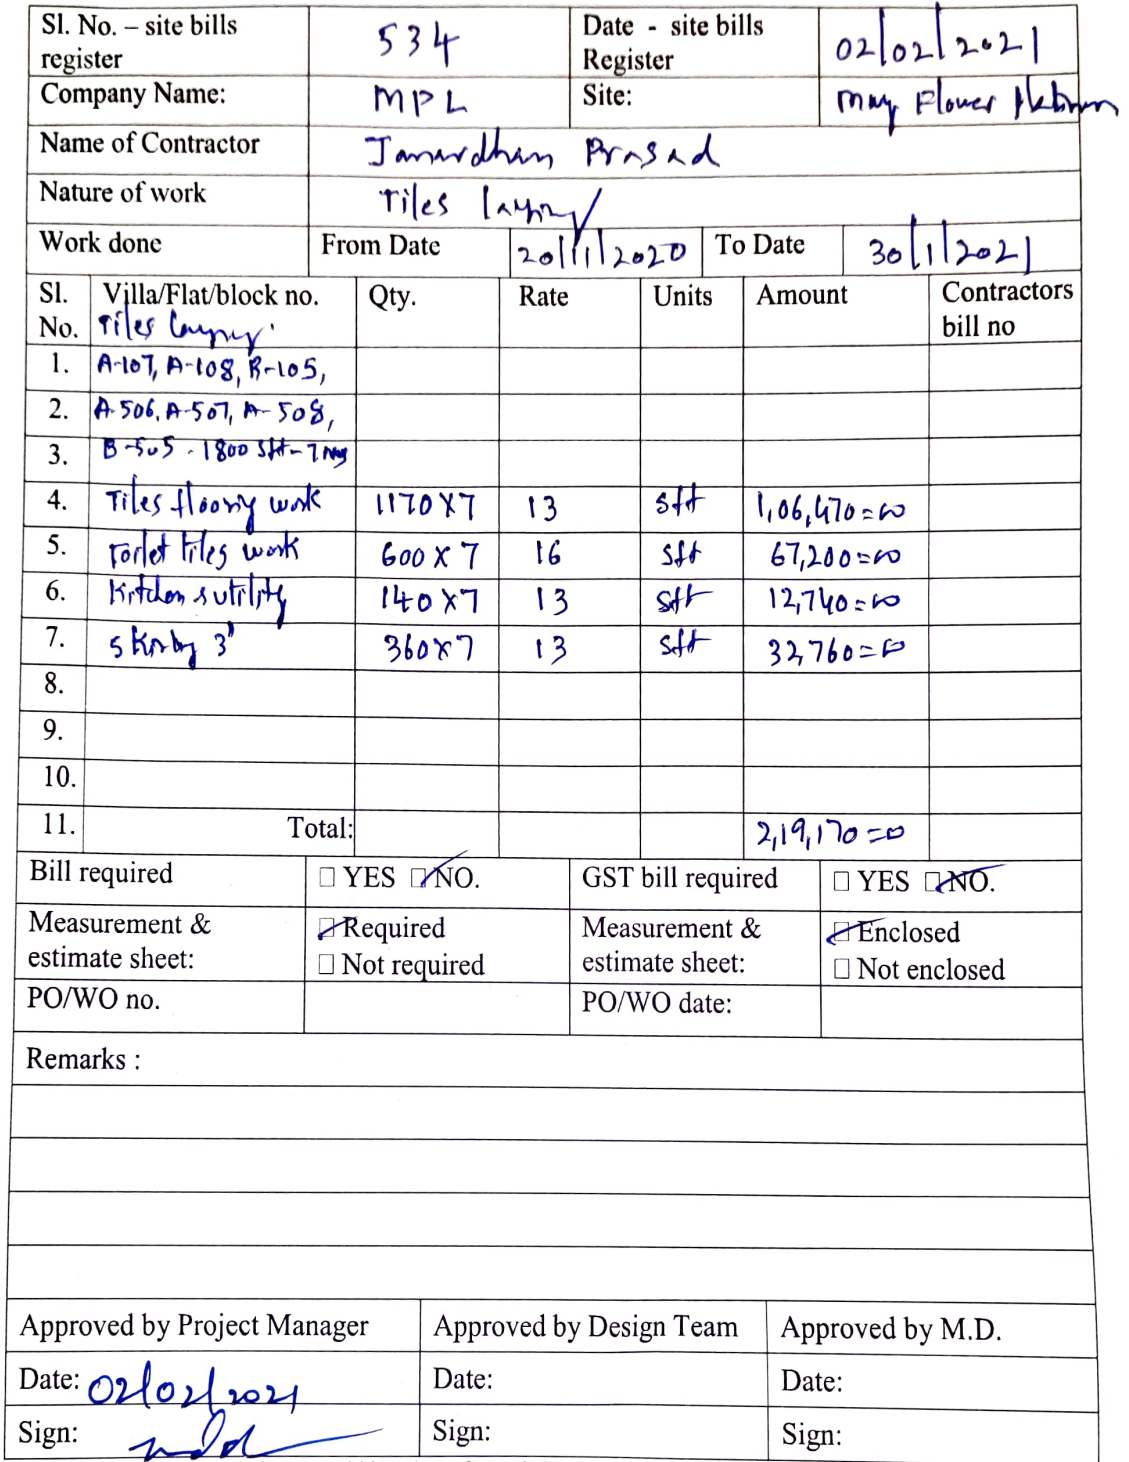 Sl. No. – site bills register 534 Date - site bills Register 02/02/2021
Company Name: MPL Site: May Flower Platinum
Name of Contractor Janardhan Prasad
Nature of work Tiles laying
Work done From Date 20/11/2020 To Date 30/1/2021
Sl. No. Villa/Flat/block no. Qty. Rate Units Amount Contractors bill no
Tiles laying.
1. A-107, A-108, B-105,
2. A-506, A-507, A-508,
3. B-505 - 1800 sft - 7 nos
4. Tiles flooring work 1170X7 13 sft 1,06,470=00
5. Toilet tiles work 600 X 7 16 sft 67,200=00
6. Kitchen & utility 140 X7 13 sft 12,740=00
7. 3" 360X7 13 sft 32,760=00
8.
9.
10.
11. Total: 2,19,170=00
Bill required □ YES □ NO. GST bill required □ YES □ NO.
Measurement & estimate sheet: □ Required Measurement & estimate sheet: □ Enclosed
□ Not required □ Not enclosed
PO/WO no. PO/WO date:
Remarks :
Approved by Project Manager Approved by Design Team Approved by M.D.
Date: 02/02/2021 Date: Date:
Sign: Sign: Sign: